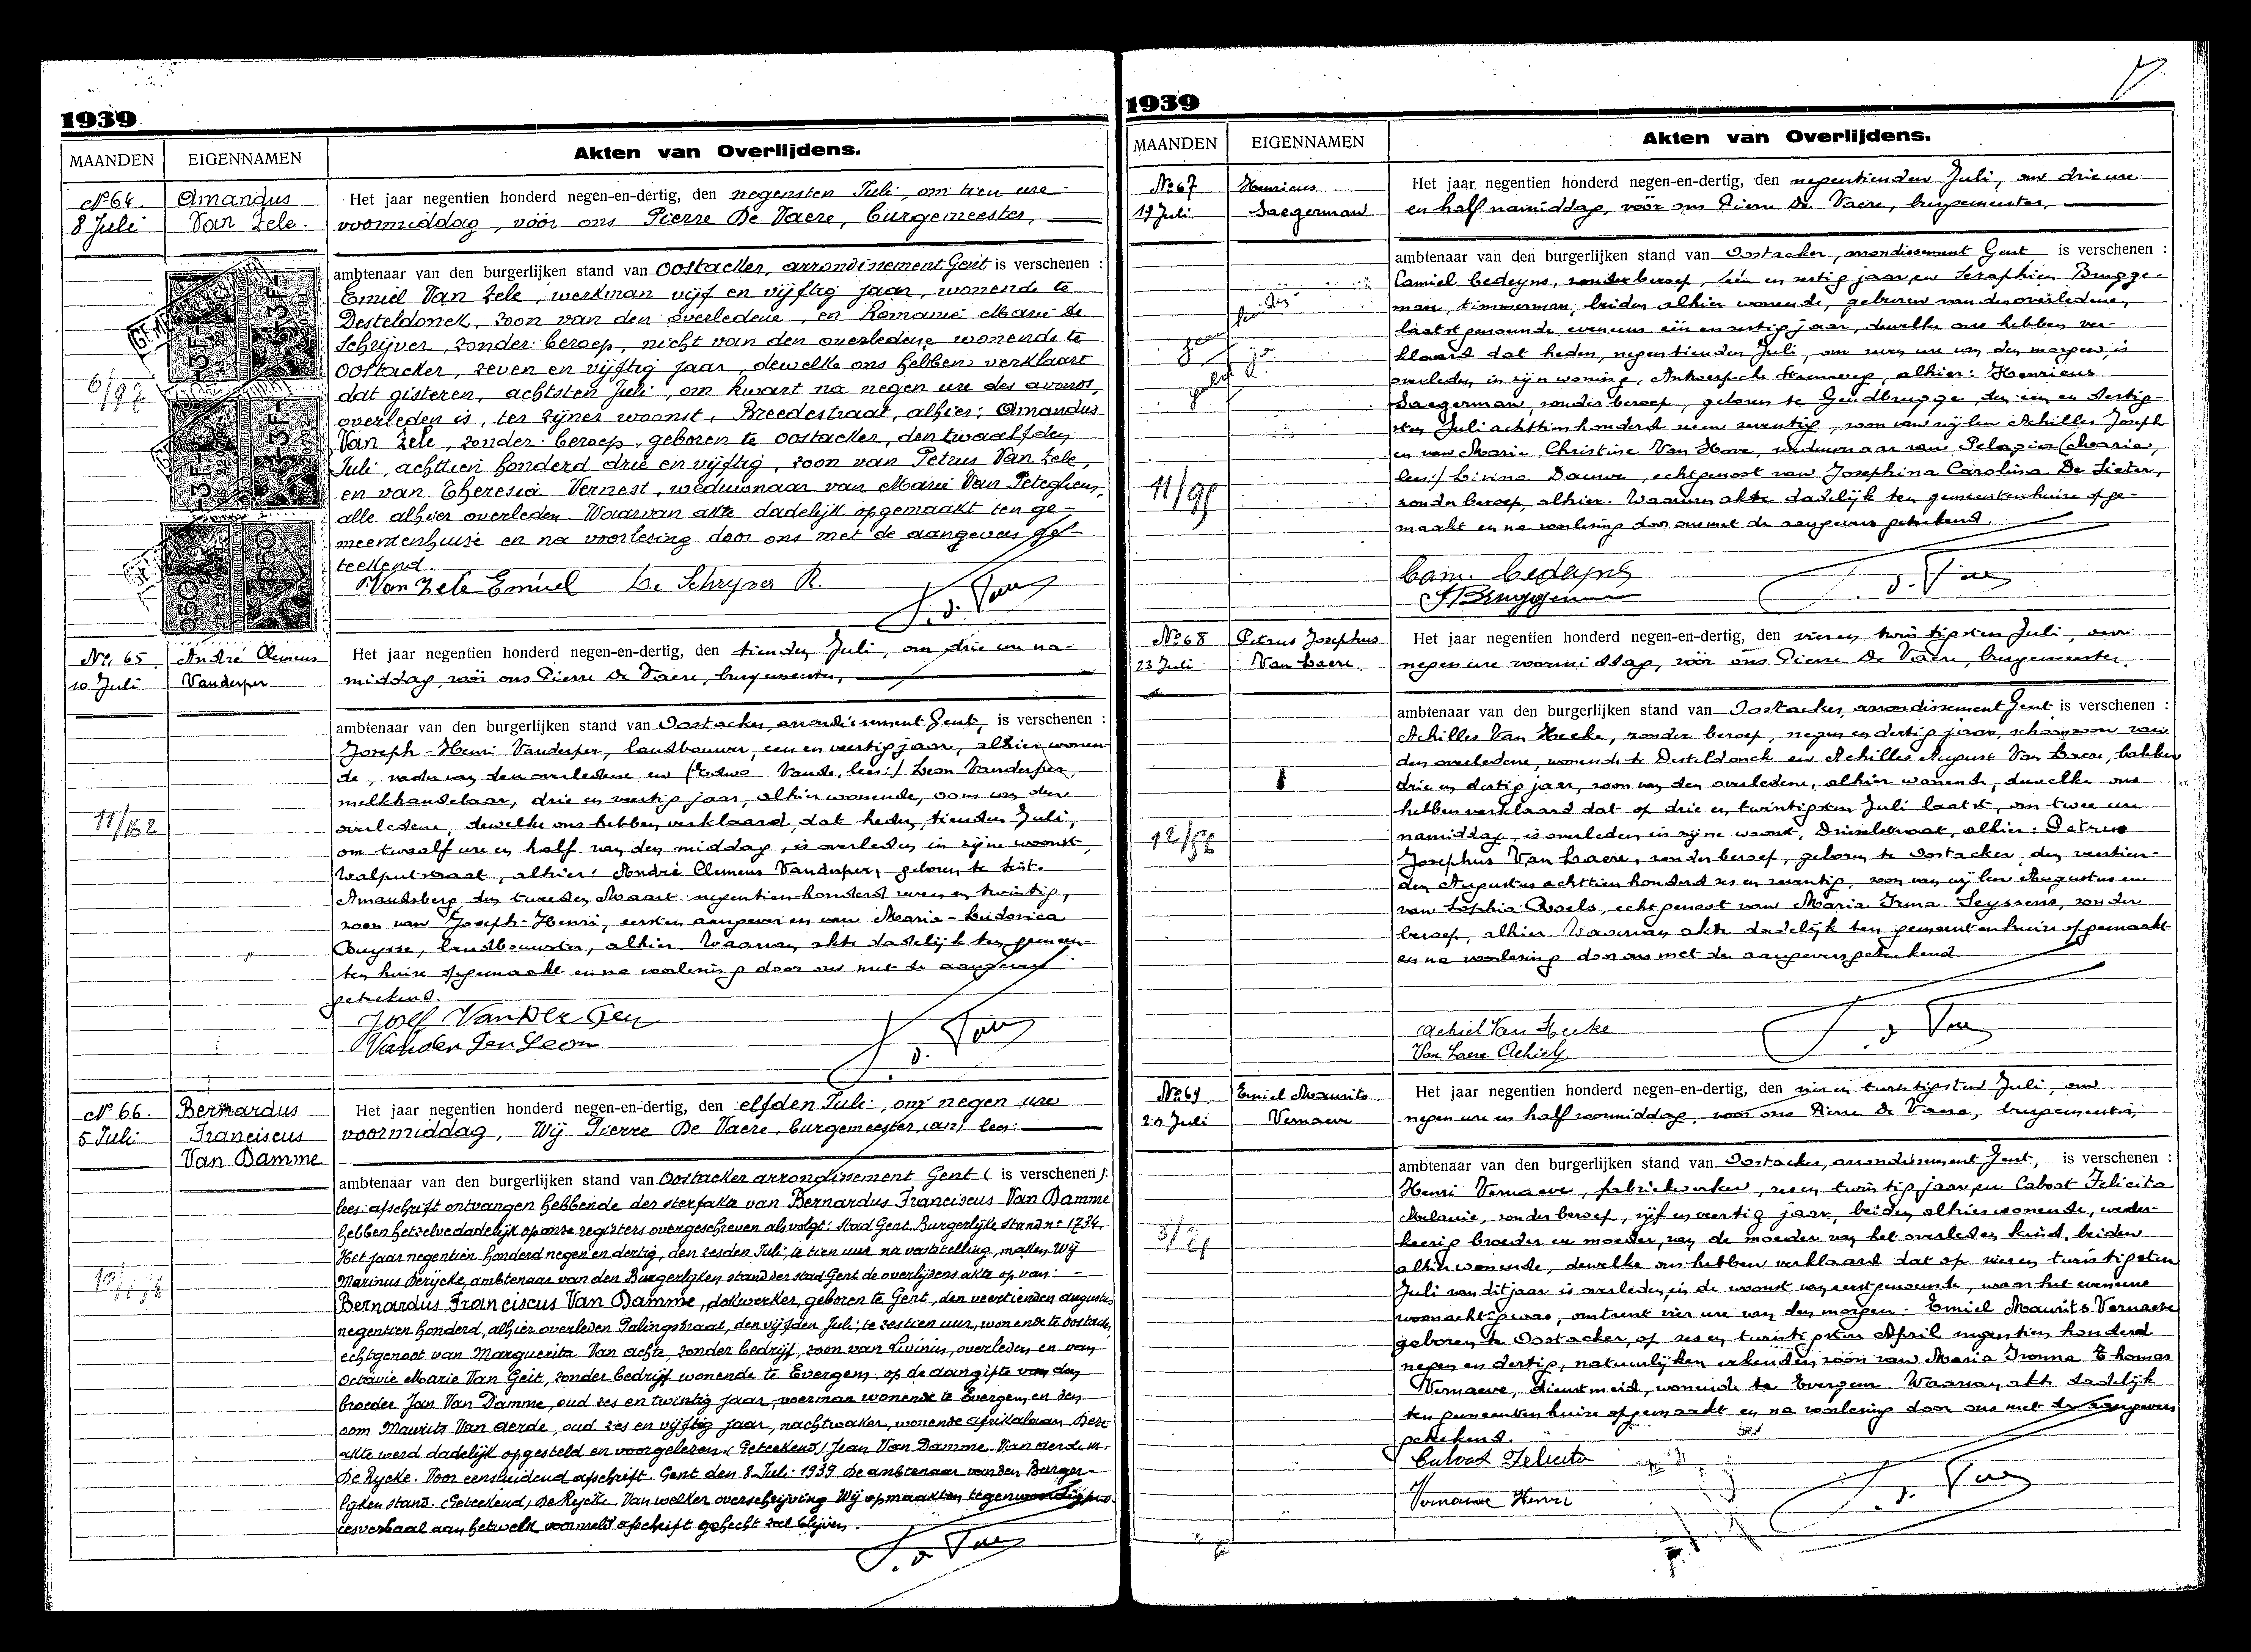 1939
MAANDEN EIGENNAMEN Akten van Overlijdens.
No 64. Amandus
8 Juli Van Zele.
Het jaar negentien honderd negen-en-dertig, den negensten Juli, om tien ure
voormiddag, vóór ons Pierre De Vaere, burgemeester,
ambtenaar van den burgerlijken stand van Oostacker, arrondissement Gent is verschenen :
Emiel Van Zele, werkman vijf en vijftig jaar, wonende te
Desteldonck, zoon van den overledene, en Romanie Marie De
Schrijver, zonder beroep, nicht van den overledene wonende te
Oostacker, zeven en vijftig jaar, dewelke ons hebben verklaart
dat gisteren, achtsten Juli, om kwart na negen ure des avonds,
overleden is, ter zijner woonst, Breedestraat, alhier: Amandus
Van Zele, zonder beroep, geboren te Oostacker, den twaalfden
Juli, achttien honderd drie en vijftig, zoon van Petrus Van Zele,
en van Theresia Vernest, weduwnaar van Marie Van Peteghem,
alle alhier overleden. Waarvan akte dadelijk opgemaakt ten ge-
meentenhuise en na voorlezing door ons met de aangevers ge-
teekend.
Van Zele Emiel De Schryver R.
No. 65 André Clemens
10 Juli Vanderper
Het jaar negentien honderd negen-en-dertig, den tienden Juli, om drie ure na-
middag, vóór ons Pierre De Vaere, burgemeester,
ambtenaar van den burgerlijken stand van Oostacker, arrondissement Gent, is verschenen :
Joseph-Henri Vanderper, landbouwer, een en veertig jaar, alhier wonen-
de, vader van den overledene en Leon Vanderper,
melkhandelaar, drie en veertig jaar, alhier wonende, oom van den
overledene, dewelke ons hebben verklaard, dat heden, tienden Juli,
om twaalf ure en half van den middag, is overleden in zijne woonst,
Walputstraat, alhier: André Clemens Vanderper, geboren te Sint-
Amandsberg den tweeden Maart negentien honderd zeven en twintig,
zoon van Joseph-Henri, eersten aangever en van Maria-Ludovica
Buysse, landbouwster, alhier. Waarvan akte dadelijk ten gemeen-
ten huize opgemaakt en na voorlezing door ons met de aangevers
getekend.
No 66. Bernardus
5 Juli Franciscus
Van Damme
Het jaar negentien honderd negen-en-dertig, den elfden Juli, om negen ure
voormiddag, Wij Pierre De Vaere, burgemeester, lees:
ambtenaar van den burgerlijken stand van Oostacker arrondissement Gent ( is verschenen ):
lees: afschrift ontvangen hebbende der sterfakte van Bernardus Franciscus Van Damme
hebben hetzelve dadelijk op onze registers overgeschreven als volgt: Stad Gent. Burgerlijke stand no 1734.
Het jaar negentien honderd negen en dertig, den zesden Juli, te tien uur na vaststelling, maken Wij
Marinus De Rycke, ambtenaar van den Burgerlijken stand der stad Gent de overlijdens akte op van:
Bernardus Franciscus Van Damme, dokwerker, geboren te Gent, den veertienden augustus
negentien honderd, alhier overleden Palingstraat, den vijfden Juli, te zestien uur, wonende te Oostacker,
echtgenoot van Marguerita Van achte, zonder bedrijf, zoon van Livinus, overleden en van
Octavie Marie Van Geit, zonder bedrijf wonende te Evergem. op de aangifte van den
broeder Jan Van Damme, oud zes en twintig jaar, voerman wonende te Evergem, en den
oom Maurits Van aerde, oud zes en vijftig jaar, nachtwaker, wonende afrikalaan. Deze
akte werd dadelijk opgesteld en voorgelezen. (Geteekend) Jean Van Damme. Van aerde m.
De Rycke. Voor eensluidend afschrift. Gent den 8 Juli 1939 De ambtenaar van den Burger-
lijken stand. (Geteekend) De Rycke. Van welker overschrijving Wij opmaakten tegenwoordig pro-
cesverbaal aan hetwelk voormeld afschrift gehecht zal blijven.
1939
MAANDEN EIGENNAMEN Akten van Overlijdens.
No 67 Henricus
19 Juli Saegerman
Het jaar negentien honderd negen-en-dertig, den negentienden Juli, om drie ure
en half namiddag, vóór ons Pierre De Vaere, burgemeester,
ambtenaar van den burgerlijken stand van Oostacker, arrondissement Gent is verschenen :
Camiel Cedeyns, zonder beroep, één en zestig jaar, en Seraphien Brugge-
man, timmerman, beiden alhier wonende, geburen van den overledene,
laatst genoemde, eveneens één en zestig jaar, dewelke ons hebben ver-
klaard dat heden, negentienden Juli, om zeven ure van den morgen, is
overleden in zijn woning, Antwerpsche steenweg, alhier: Henricus
Saegerman, zonder beroep, geboren te Gendbrugge, den één en dertig-
sten Juli achttien honderd zes en zeventig, zoon van wijlen Achilles Joseph
en van Marie Christine Van Hove, weduwnaar van Pelagia (Maria,
lees:) Livina Dauwe, echtgenoot van Josephina Carolina De Sieter,
zonder beroep, alhier. Waarvan akte dadelijk ten gemeentenhuize opge-
maakt en na voorlezing door ons met de aangevers getekend.
Cam. Cedeyns
No 68 Petrus Josephus
23 Juli Van Laere
Het jaar negentien honderd negen-en-dertig, den vier en twintigsten Juli, om
negen ure voormiddag, vóór ons Pierre De Vaere, burgemeester,
ambtenaar van den burgerlijken stand van Oostacker, arrondissement Gent is verschenen :
Achilles Van Hecke, zonder beroep, negen en dertig jaar, schoonzoon van
den overledene, wonende te Desteldonck en Achilles August Van Laere, bakker
drie en dertig jaar, zoon van den overledene, alhier wonende, dewelke ons
hebben verklaard dat op drie en twintigsten Juli laatst, om twee ure
namiddag, is overleden in zijne woonst, Drieselstraat, alhier: Petrus
Josephus Van Laere, zonder beroep, geboren te Oostacker den veertien-
den Augustus achttien honderd zes en zeventig, zoon van wijlen Augustus en
van Sophia Roels, echtgenoot van Maria Irma Seyssens, zonder
beroep, alhier. Waarvan akte dadelijk ten gemeentenhuize opgemaakt
en na voorlezing door ons met de aangevers getekend
Achiel Van Hecke
Van Laere Achiel
No 69 Emiel Maurits
24 Juli Vernaeve
Het jaar negentien honderd negen-en-dertig, den vier en twintigsten Juli, om
negen ure en half voormiddag, voor ons Pierre De Vaere, burgemeester,
ambtenaar van den burgerlijken stand van Oostacker, arrondissement Gent, is verschenen :
Henri Vernaeve, fabriekwerker, zes en twintig jaar, en Calvost Felicita
Melanie, zonder beroep, vijf en veertig jaar, beiden alhier wonende, weder-
keerig broeder en moeder, van de moeder van het overleden kind, beiden
alhier wonende, dewelke ons hebben verklaard dat op vier en twintigsten
Juli van dit jaar is overleden, in de woonst van eerstgenoemde, waar het eveneens
woonachtig was, omtrent vier ure van den morgen: Emiel Maurits Vernaeve
geboren te Oostacker, op zes en twintigsten April negentien honderd
negen en dertig, natuurlijken erkenden zoon van Maria Ivonna Thomas
Vernaeve, dienstmeid, wonende te Evergem. Waarvan akte dadelijk
ten gemeentenhuize opgemaakt en na voorlezing door ons met de aangevers
getekend.
Vernaeve Henri